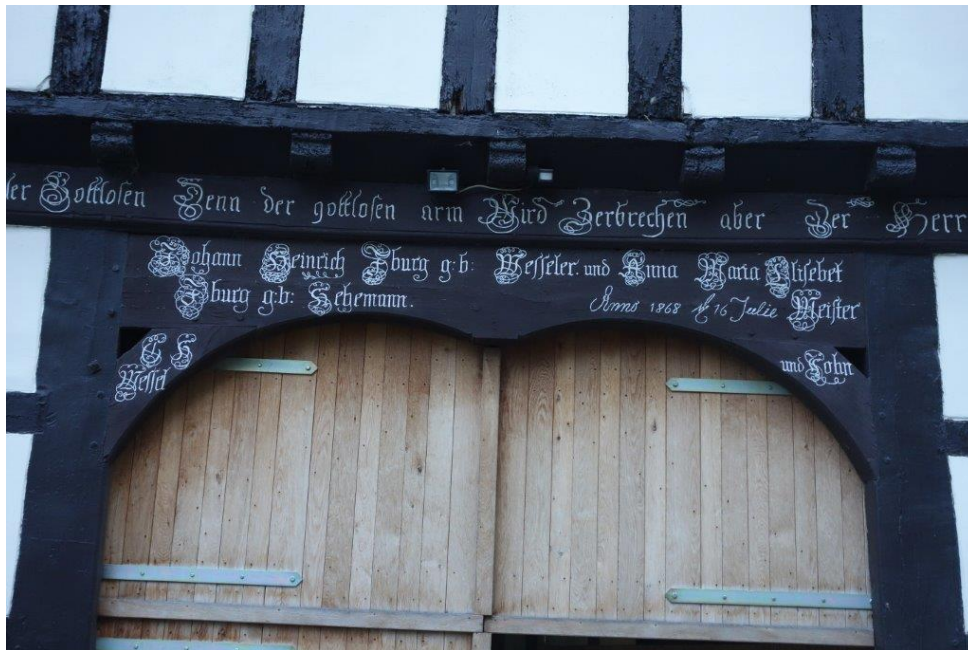 der Gottlosen Denn der gottlosen arm Wird Zerbrechen aber Der Herr
Johann Heinrich Iburg g:b: Wesseler und Anna Maria Elisebet
Iburg g:b: Sehemann. Anno 1868 d 16 Julie Meister
Wessel und Sohn